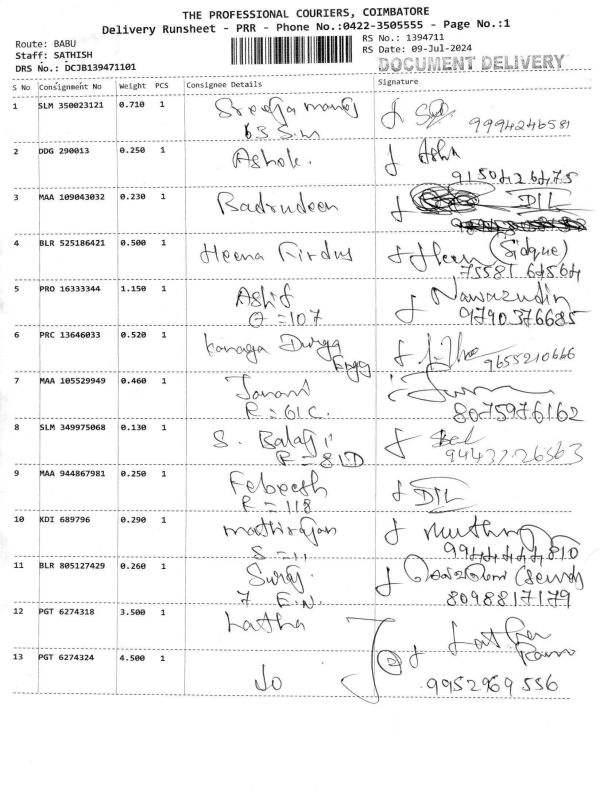 THE PROFESSIONAL COURIERS, COIMBATORE
Delivery Runsheet - PRR - Phone No.:0422-3505555 - Page No.:1
Route: BABU
RS No.: 1394711
Staff: SATHISH
RS Date: 09-Jul-2024
DRS No.: DCJB139471101
DOCUMENT DELIVERY
S No Consignment No Weight PCS Consignee Details Signature
1 SLM 350023121 0.710 1 Sreeja manoj
63 S.M 9994246581
2 DDG 290013 0.250 1 Ashok. Asha
9150426475
3 MAA 109043032 0.230 1 Badrudeen DIL
4 BLR 525186421 0.500 1 Heena Firdus Heen (Sidque)
75581 64564
5 PRO 16333344 1.150 1 Ashif Nawazudin
G =107 9790376685
6 PRC 13646033 0.520 1 Kanaga Durga
Engg 9655210666
7 MAA 105529949 0.460 1 Janani
R = 61C. 8075976162
8 SLM 349975068 0.130 1 S. Balaji
R = 81D 94437.26563
9 MAA 944867981 0.250 1 Febeesh DIL
R = 118
10 KDI 689796 0.290 1 mathirajan
S = 11 9944444810
11 BLR 805127429 0.260 1 Suraj.
7 E.N. 8098817179
12 PGT 6274318 3.500 1 Latha Latha
Ram
13 PGT 6274324 4.500 1 Jo 2
9952969 556